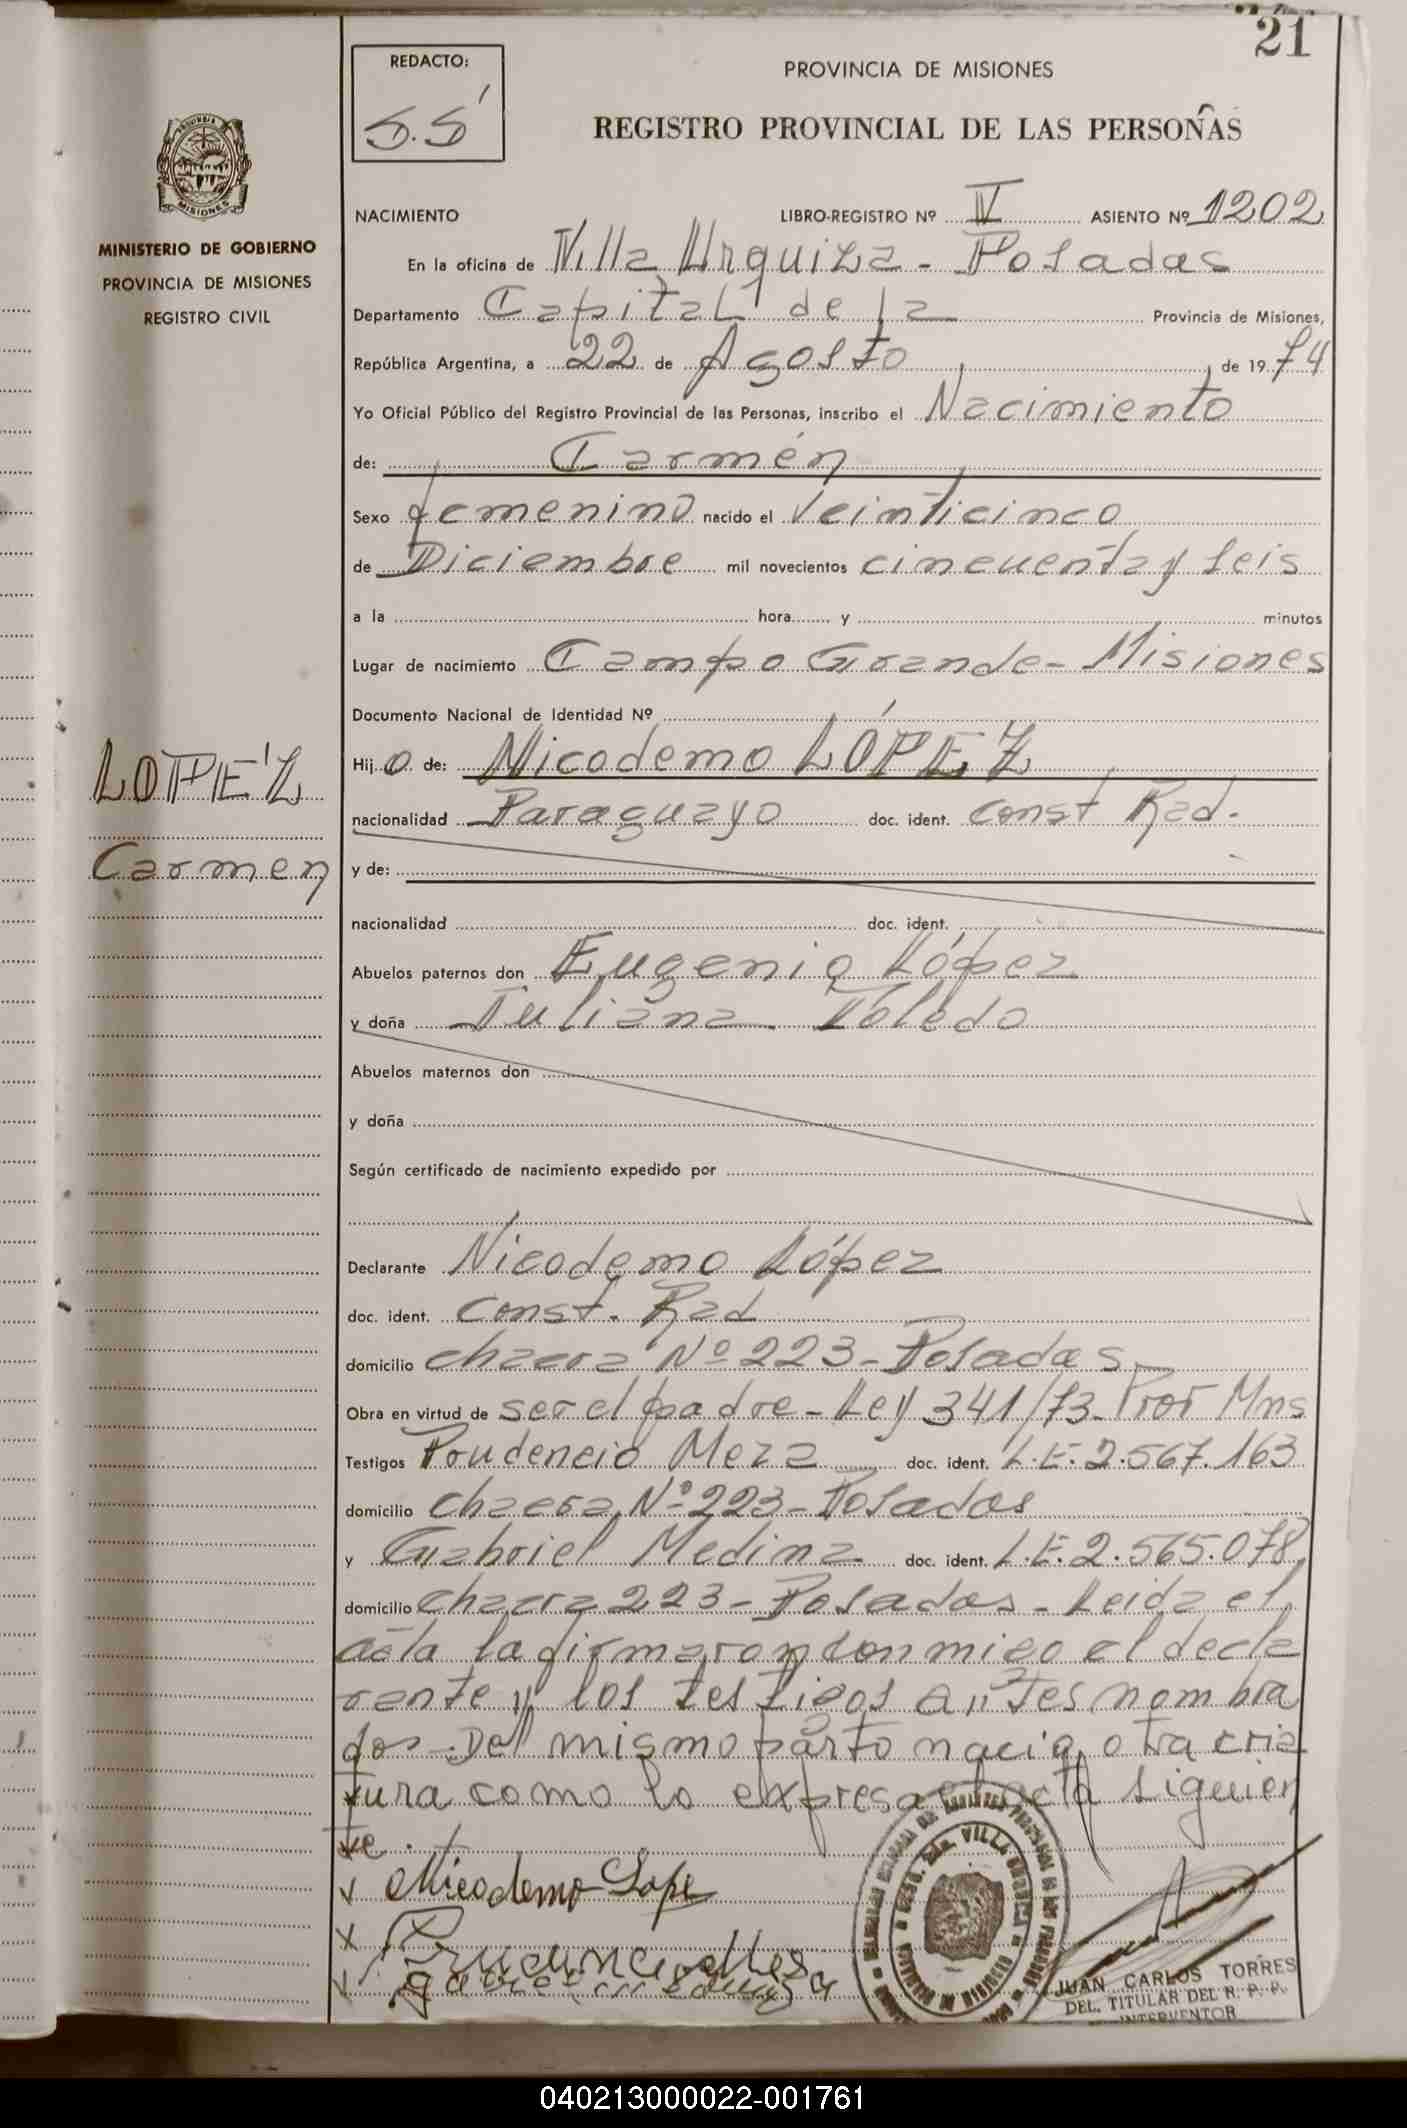 21
REDACTO:
S.S
PROVINCIA DE MISIONES
REGISTRO PROVINCIAL DE LAS PERSONAS
MISIONES
MINISTERIO DE GOBIERNO
PROVINCIA DE MISIONES
REGISTRO CIVIL
NACIMIENTO LIBRO-REGISTRO Nº IV ASIENTO Nº 1202
En la oficina de Villa Urquiza - Posadas
Departamento Capital de la Provincia de Misiones,
República Argentina, a 22 de Agosto de 1974
Yo Oficial Público del Registro Provincial de las Personas, inscribo el Nacimiento
de: Carmén
Sexo femenino nacido el veinticinco
de Diciembre mil novecientos cincuenta y seis
a la hora y minutos
Lugar de nacimiento Campo Grande - Misiones
Documento Nacional de Identidad Nº
Hijo de: Nicodemo LÓPEZ
LOPEZ
nacionalidad Paraguayo doc. ident. const Rad.
Carmen
y de:
nacionalidad doc. ident.
Abuelos paternos don Eugenio López
y doña Juliana Toledo
Abuelos maternos don
y doña
Según certificado de nacimiento expedido por
Declarante Nicodemo López
doc. ident. const. Rad
domicilio chacra Nº 223 - Posadas
Obra en virtud de ser el padre - Ley 341/73 - Mns
Testigos Prudencio Meza doc. ident. L.E. 2.567.163
domicilio chacra Nº 223 - Posadas
y Gabriel Medina doc. ident. L.E. 2.565.078
domicilio chacra 223 - Posadas - Leida el
acta la firmaron conmigo el decla
rante y los testigos antes nombra
dos - Del mismo parto nacio otra cria
tura como lo expresa el acta siguien
te.
x Nicodemo Lope
x
x
JUAN CARLOS TORRES
DEL. TITULAR DEL R. P. P.
INTERVENTOR
040213000022-001761